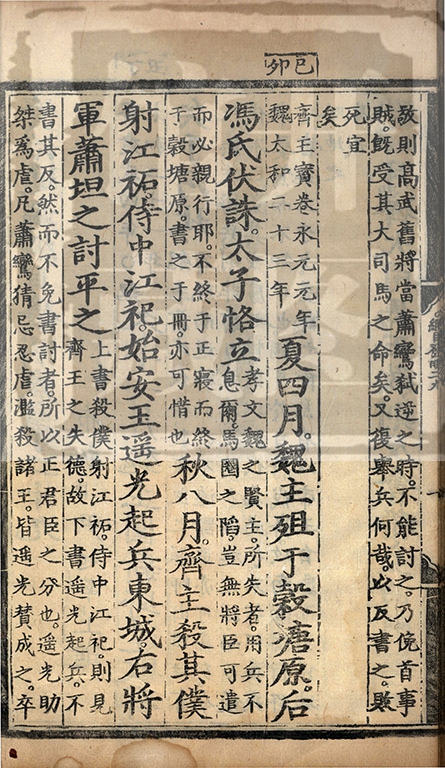 己卯
敬則高武舊將當蕭鸞弑逆之時。不能討之。乃俛首事
賊。旣受其大司馬之命矣。又復舉兵何哉。以反書之。
死宜
矣
齊主寶卷永元元年
魏太和二十三年
夏四月。魏主殂于穀塘原。后
馮氏伏誅。太子恪立
孝文魏之賢主。所失者。用兵不
息爾。馬圈之陷。豈無將臣可遣
而必親行耶。不終于正寢而終
于穀塘原。書之于冊。亦可惜也
秋八月。齊主殺其僕
射江祏侍中江祀。始安王遥光起兵東城。右將
軍蕭坦之討平之
上書殺僕射江祏。侍中江祀。則見
齊王之失德。故下書遥光起兵。不
書其反。然而不免書討者。所以正君臣之分也。遥光助
桀爲虐。凡蕭鸞猜忌忍虐。濫殺諸王。皆遥光賛成之。卒